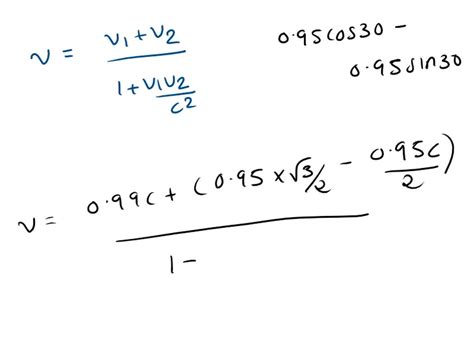 v = (v₁ + v₂) / (1 + v₁v₂/c²)
0.95cos30 −
0.95sin30
v = (0.99c + (0.95 × √3/2 − 0.95c/2)) / (1 −